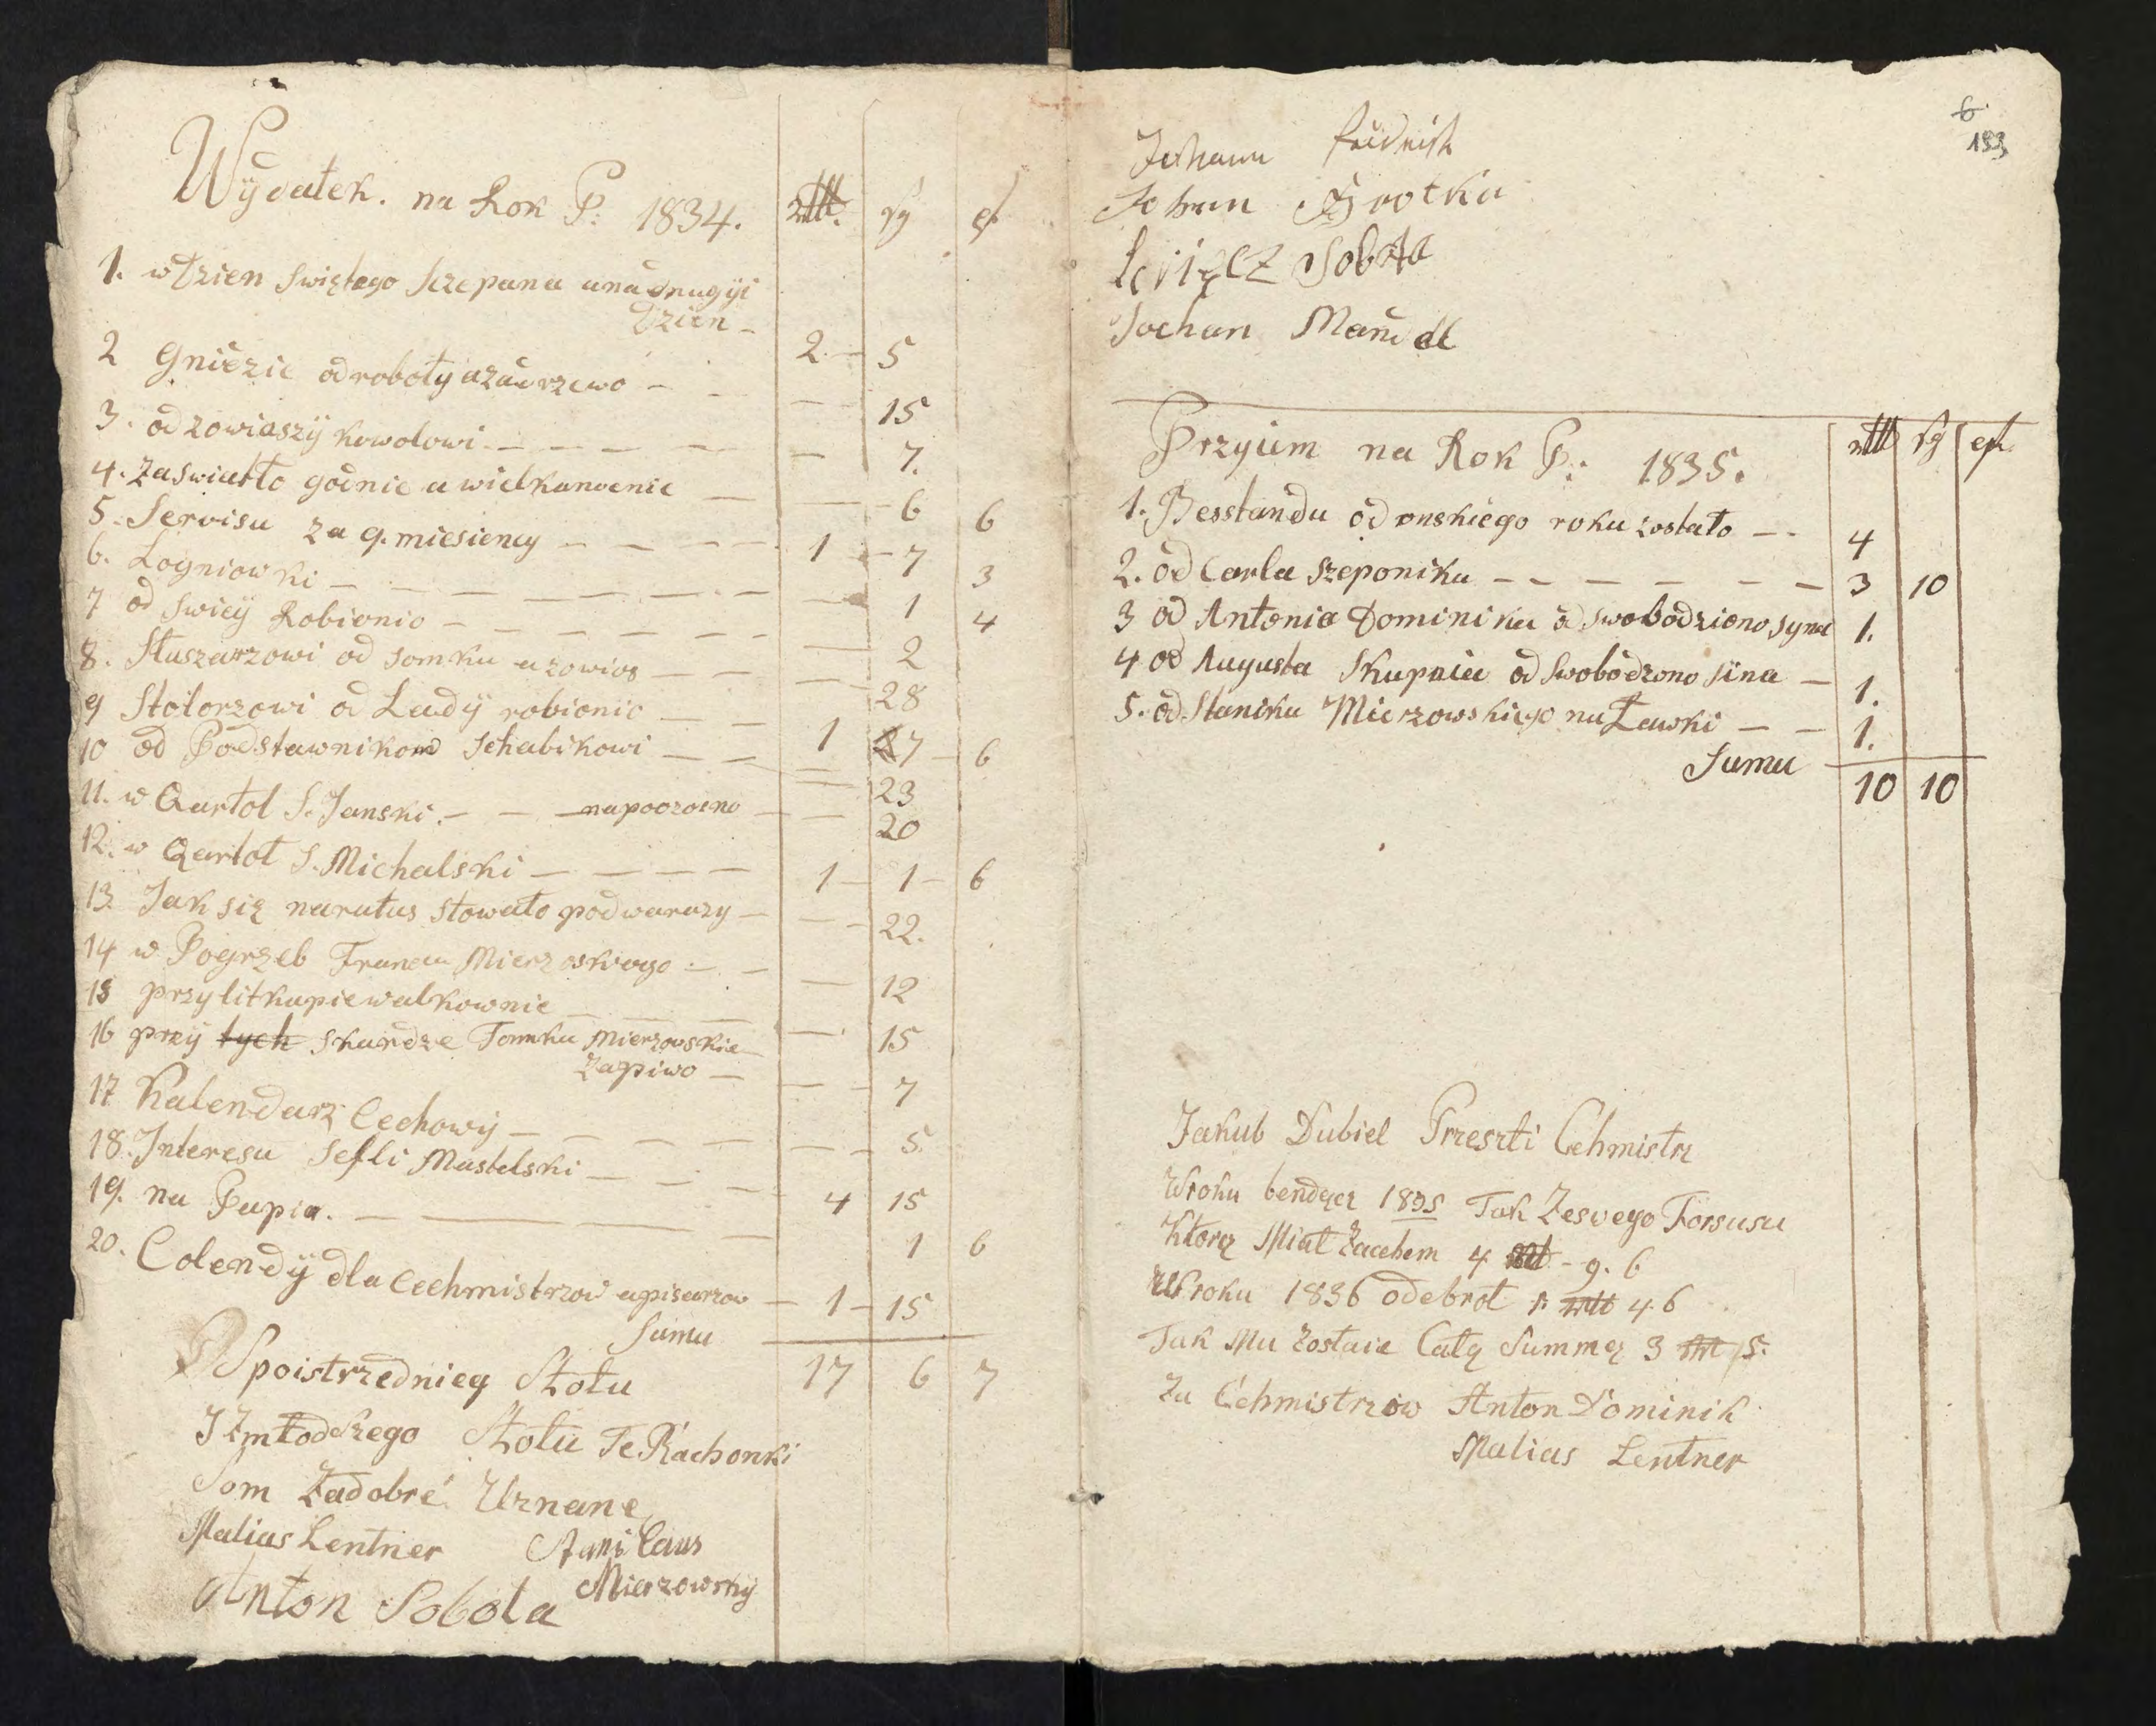 Wÿdatek. na Rok P: 1834. rttl. sg ₰
1. w Dzien Swiętego Sczepana una drugÿi
Dzien – 2 – 5
2 Gnieżie od roboty azadrzewo – – 15
3. od zowiaszÿ kowolowi – – – – – 7.
4. Zaswiatło godnie a wielkanocnie – – 6 6
5. Servisu za 9. miesiency – – – – 1 – 7 3
6. Logniowki – – – – – – 1 4
7 od Swicÿ Robionio – – – – – – 2
8. Sluszarzowi od somku a zowias – – – 28
9 Stolorzowi od Ladÿ robionio – – 1 27 – 6
10 od Podstawnikow Schabikowi – – – 23
11. w Qartol S. Janski. – – napoczosne – – 20
12. w Qartoł S. Michalski – – – – 1 – 1 – 6
13. Jak się naratus stowało podwarazy – – 22.
14 w Pogrzeb Franca Mierzoskiego – – – 12
15 przy litkupie walkownie – – – – 15
16 przÿ tych skardze Tomka Mierzowskie
Zapiwo – – – 7
17 Kalendarz Cechowÿ – – – – – – 5.
18. Interesu Sefli Mastelski – – – 4 15
19. na Papia. – – – – 1 6
20. Colendÿ dla Cechmistrzow apisarzow – 1 – 15
Suma 17 6 7
Spoistrzednieg Stołu
I Zmłodszego Stołu Te Rachonki
Som Zadobré Uznane
Matias Lentner Stanislaus
Mierzowskÿ
Anton Sobota
6
193
Johann
Johan
Sobota
Jochan Mandl
Przyiem na Rok P: 1835. rttl sg ₰
1. Besstandu od onskiego roku zostało – – 4
2. od Carla Szeponika – – – – – – 3 10
3 od Antonia Dominika od swobodziono syna 1.
4 od Augusta Skupnia od swobodzono sina – 1.
5. od Stanika Mierzowskiego na Ławki – – 1.
Suma 10 10
Jakub Dubiel Przeszti Cehmistrz
Wroku bendący 1835 Tak Zesvego Forsusu
Ktorą Miał Zacehem 4 rttl – 9. 6
Wroku 1836 odebrot 1 rttl 4 6
Tak Mu Zostaie Całą Summę 3 rttl 5.
Za Cehmistrzow Anton Dominik
Matias Lentner